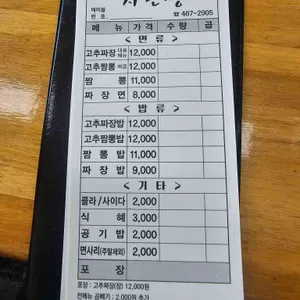 테이블
번 호 ☎ 467-2905
메 뉴 가 격 수 량 곱
< 면 류 >
고추짜장 12,000
고추짬뽕 12,000
짬 뽕 11,000
짜 장 면 8,000
< 밥 류 >
고추짜장밥 12,000
고추짬뽕밥 12,000
짬 뽕 밥 11,000
짜 장 밥 9,000
< 기 타 >
콜라/사이다 2,000
식 혜 3,000
공 기 밥 2,000
면사리(주말제외) 2,000
포 장
포장 : 고추짜장(장) 12,000원
전메뉴 곱빼기 : 2,000원 추가